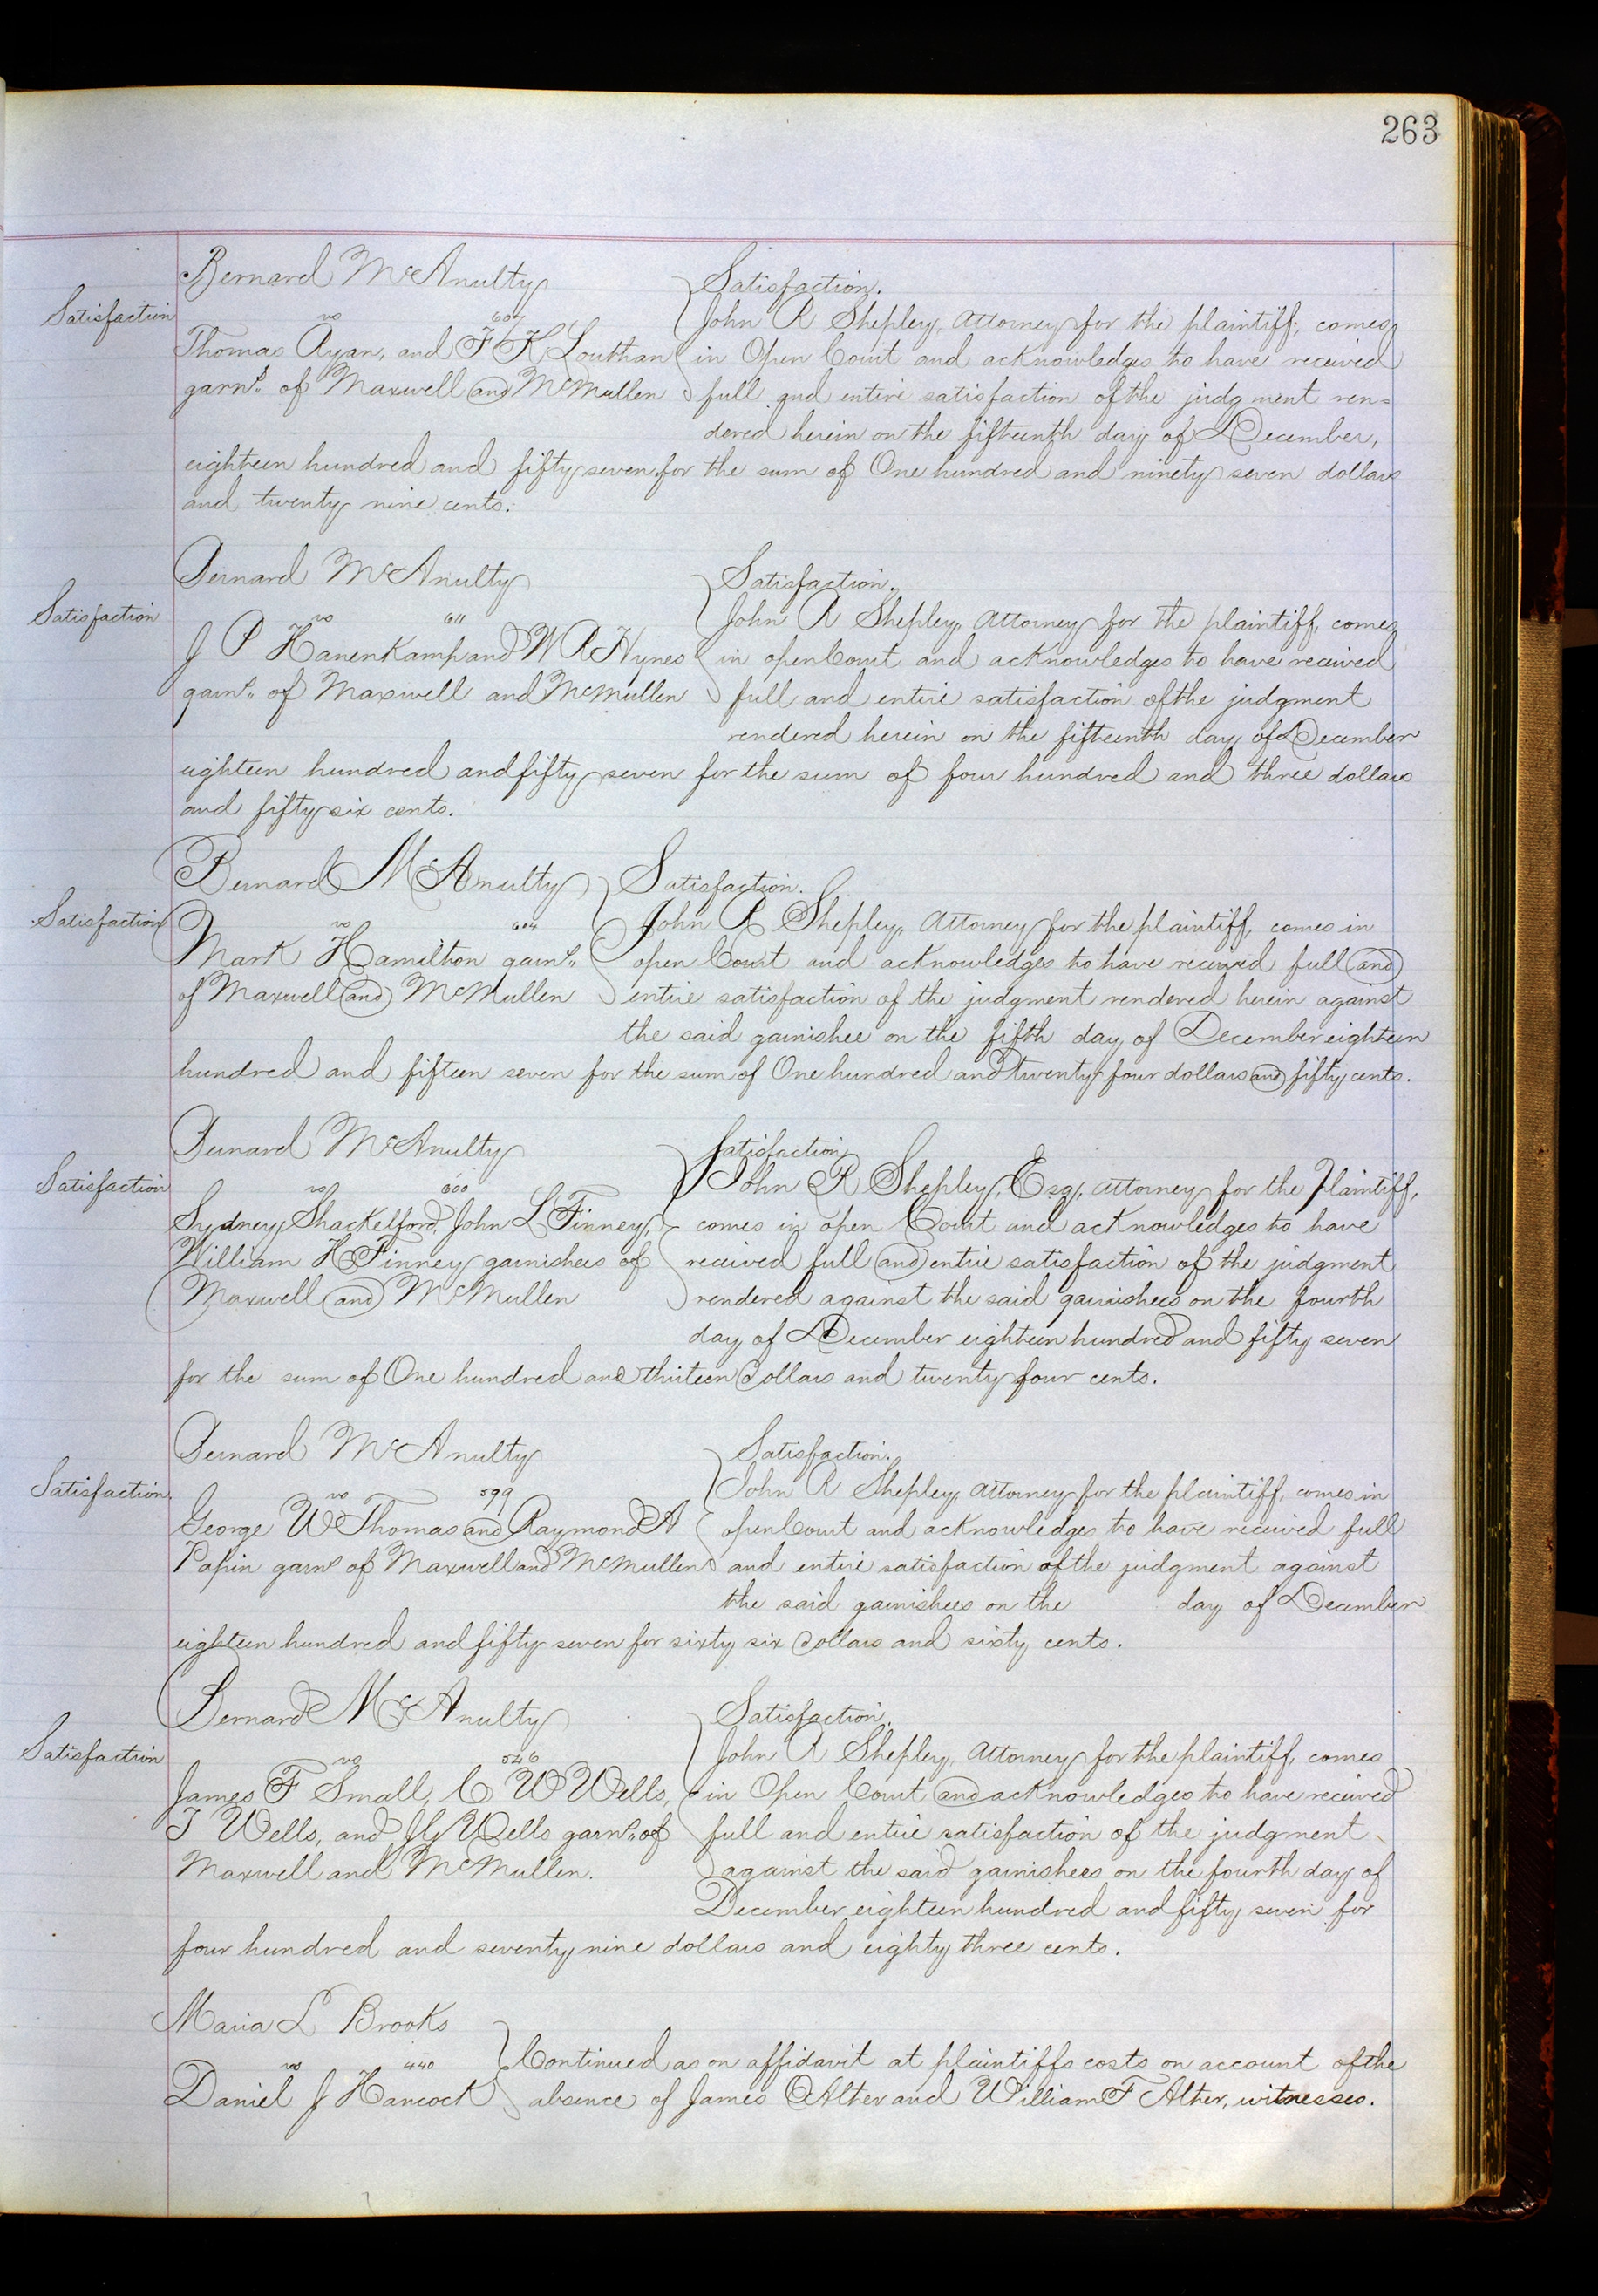 263
Bernard McAnulty
Satisfaction.
Satisfaction
vs 607
John R Shepley, Attorney for the plaintiff, comes
Thomas Ryan, and F K Louthan
in Open Court and acknowledges to have received
garns. of Maxwell and McMullen
full and entire satisfaction of the judgment ren=
dered herein on the fifteenth day of December,
eighteen hundred and fifty seven for the sum of One hundred and ninety seven dollars
and twenty nine cents.
Bernard McAnulty
Satisfaction.
Satisfaction
vs 611
John R Shepley, Attorney for the plaintiff, comes
J P Hanenkamp and W R Hynes
in open Court and acknowledges to have received
garns. of Maxwell and McMullen
full and entire satisfaction of the judgment
rendered herein on the fifteenth day of December
eighteen hundred and fifty seven for the sum of four hundred and three dollars
and fifty six cents.
Bernard McAnulty
Satisfaction.
Satisfaction
vs 604
John R Shepley, Attorney for the plaintiff, comes in
Mark Hamilton garns.
open Court and acknowledges to have received full and
of Maxwell and McMullen
entire satisfaction of the judgment rendered herein against
the said garnishee on the fifth day of December eighteen
hundred and fifteen seven for the sum of One hundred and twenty four dollars and fifty cents.
Bernard McAnulty
Satisfaction
Satisfaction
vs 600
John R Shepley, Esq, attorney for the Plaintiff,
Sydney Shackelford, John L Finney,
comes in open Court and acknowledges to have
William H Finney garnishees of
received full and entire satisfaction of the judgment
Maxwell and McMullen
rendered against the said garnishees on the fourth
day of December eighteen hundred and fifty seven
for the sum of One hundred and thirteen dollars and twenty four cents.
Bernard McAnulty
Satisfaction.
Satisfaction.
vs 599
John R Shepley, Attorney for the plaintiff, comes in
George W Thomas and Raymond A
open Court and acknowledges to have received full
Papin garns of Maxwell and McMullen
and entire satisfaction of the judgment against
the said garnishees on the day of December
eighteen hundred and fifty seven for sixty six dollars and sixty cents.
Bernard McAnulty
Satisfaction.
Satisfaction
vs 546
John R Shepley, Attorney for the plaintiff, comes
James F Small, C W Wells,
in Open Court and acknowledges to have received
T Wells, and J G Wells garns. of
full and entire satisfaction of the judgment
Maxwell and McMullen.
against the said garnishees on the fourth day of
December eighteen hundred and fifty seven for
four hundred and seventy nine dollars and eighty three cents.
Maria L Brooks
vs 440
Continued as on affidavit at plaintiffs costs on account of the
Daniel J Hancock
absence of James O Alter and William F Alter, witnesses.